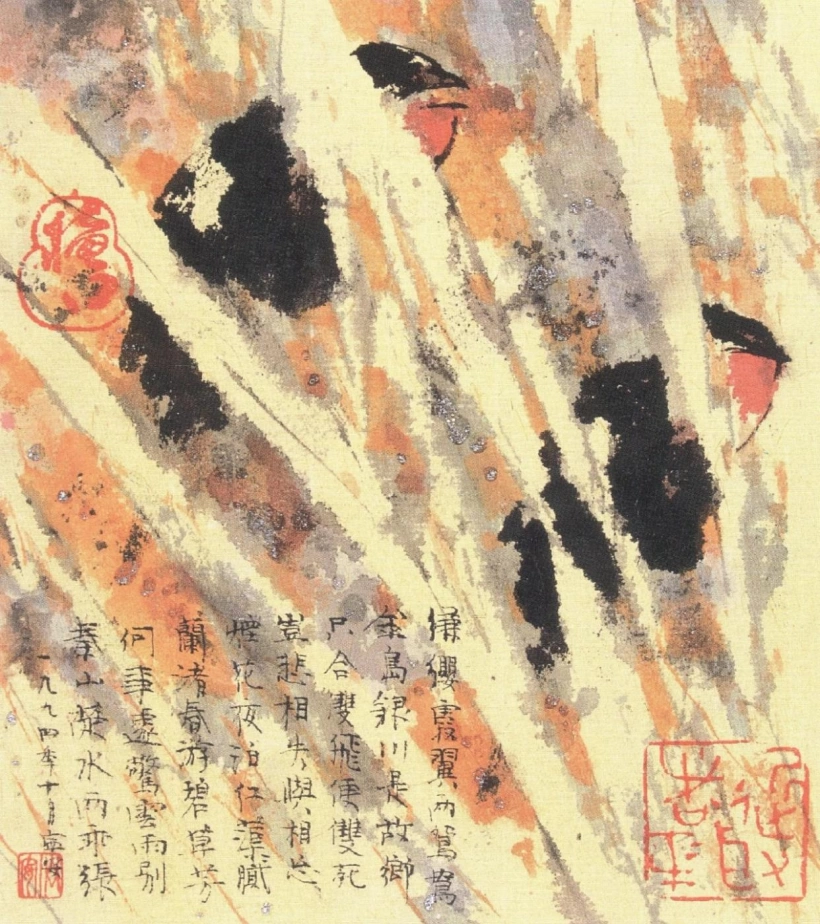 綉纓霞翼两鴛鴦
金島銀川是故鄉
只合雙飛便雙死
豈悲相失與相忘
煙花夜泊红蕖膩
蘭渚春游碧草芳
何事遽驚雲雨別
秦山楚水两乖張
一九九四年十月